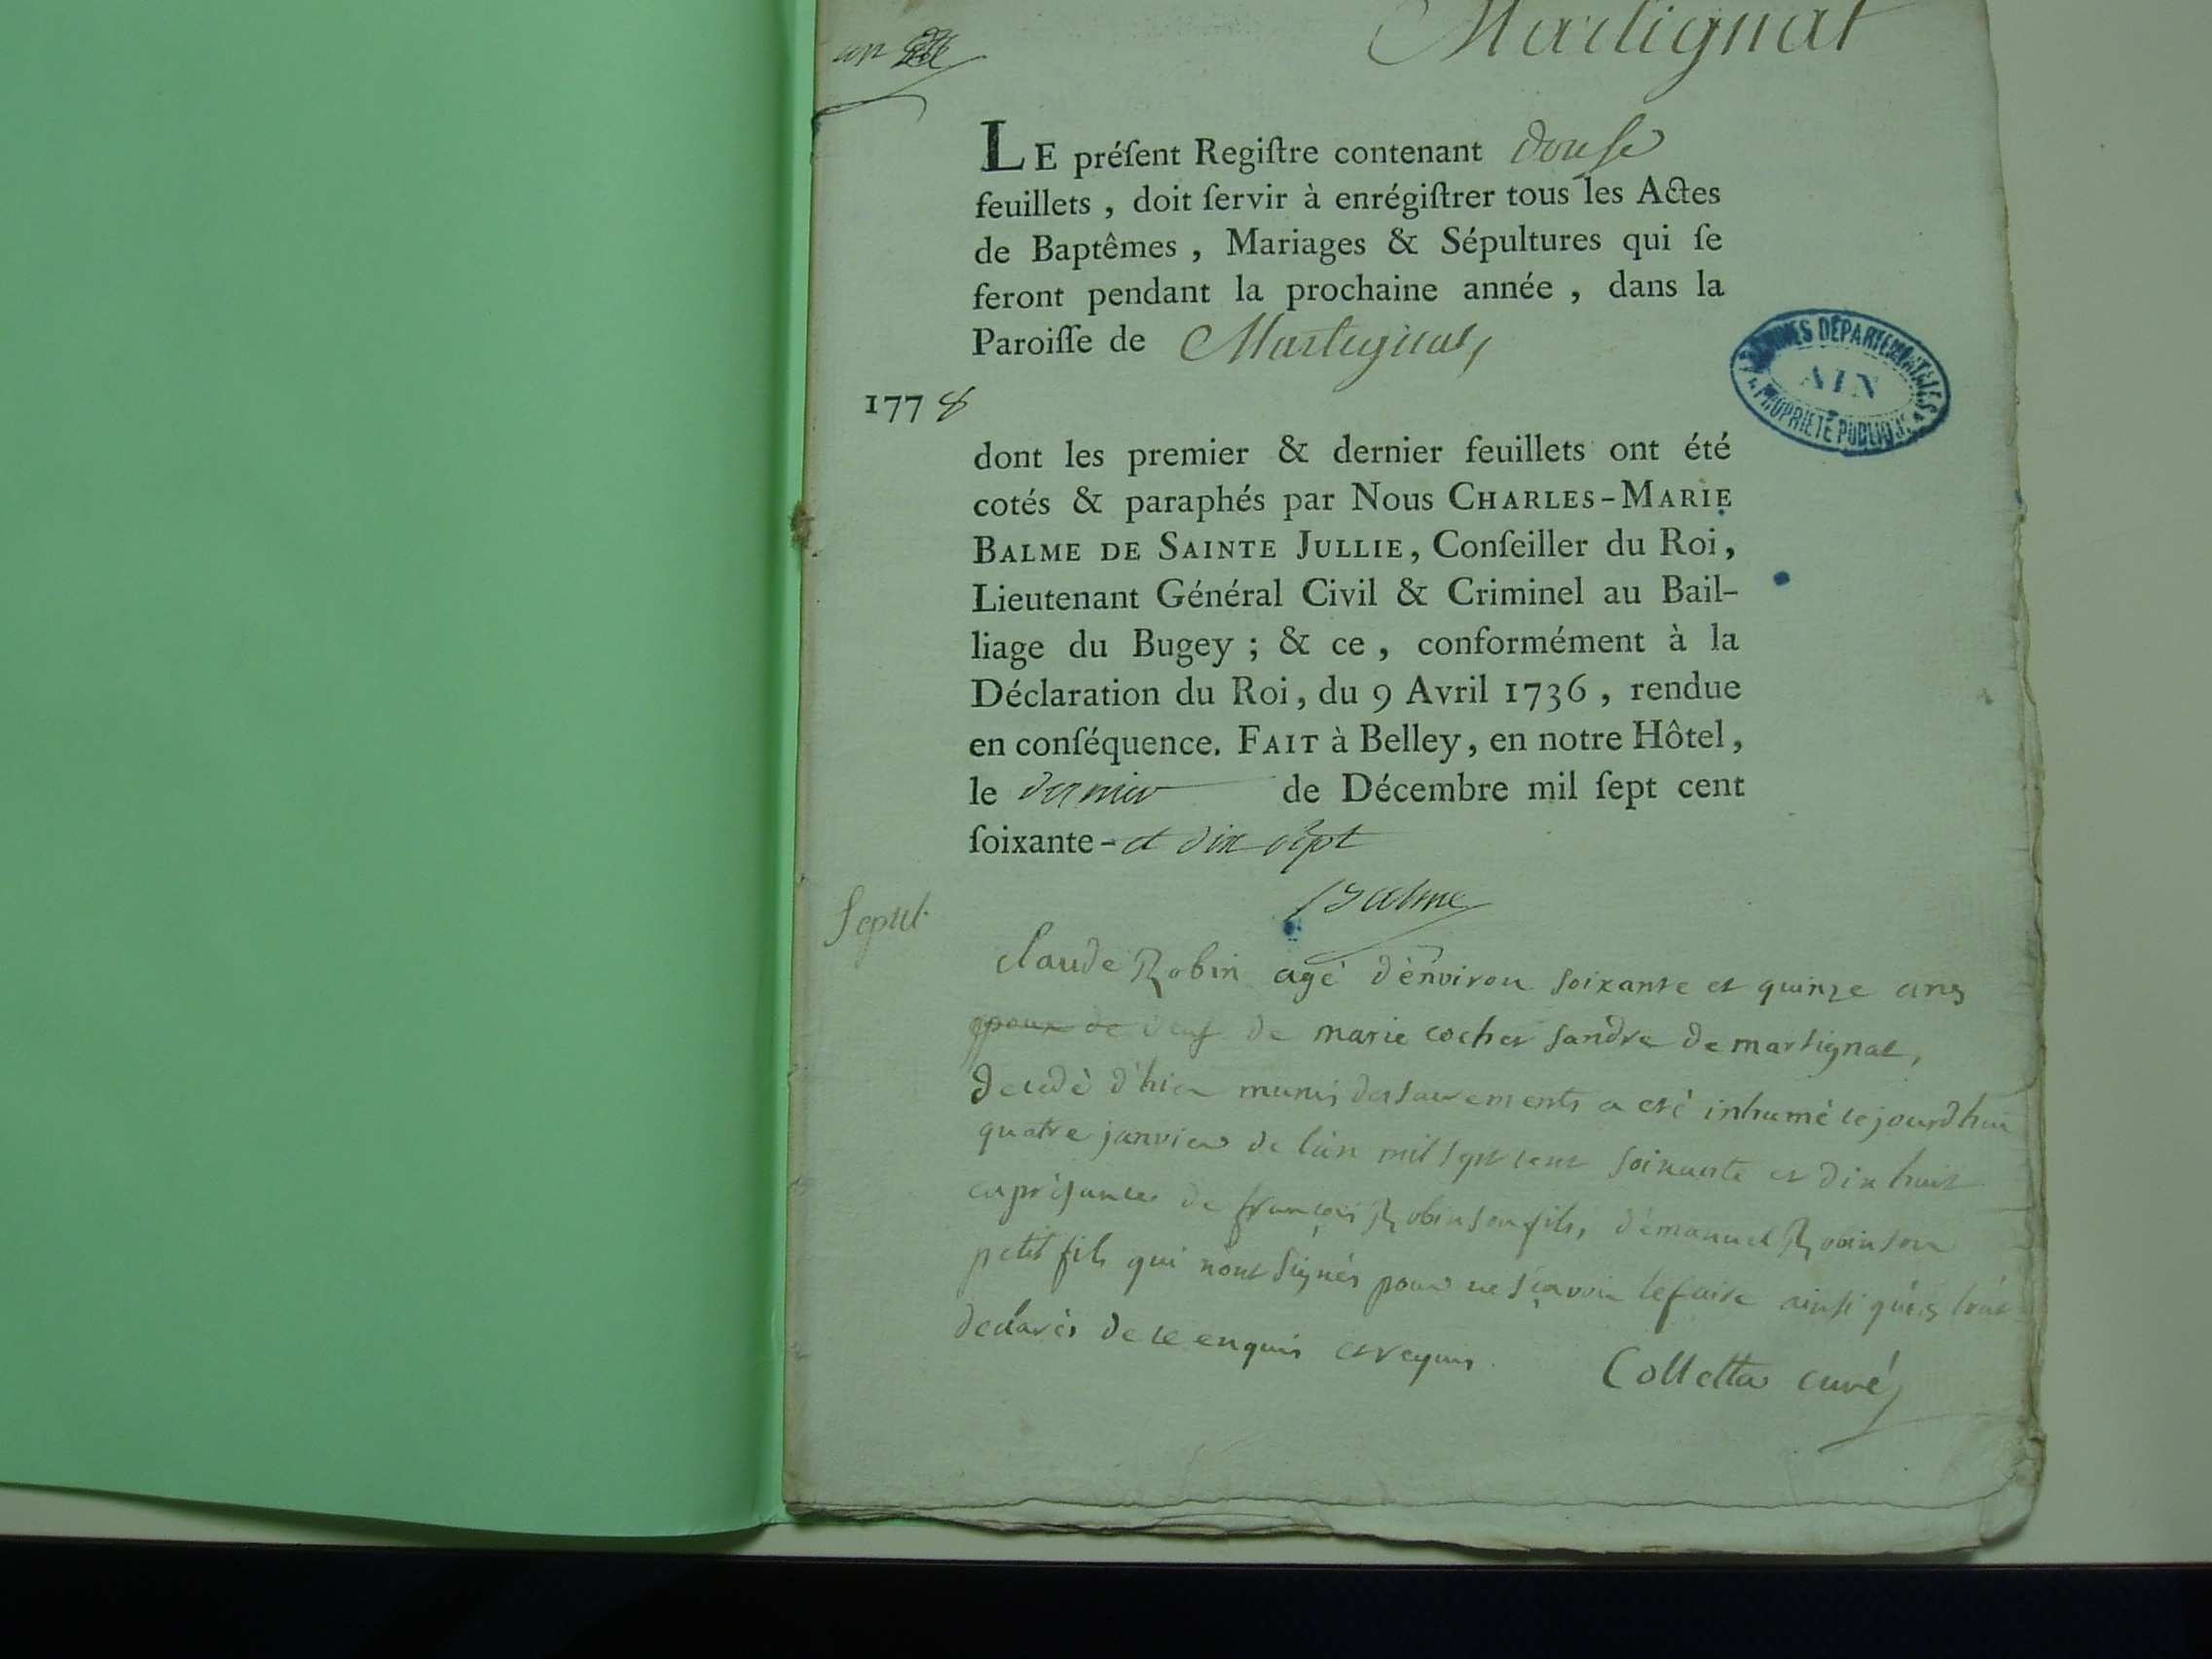 Martignat
LE préſent Regiſtre contenant douſe
feuillets , doit ſervir à enrégiſtrer tous les Actes
de Baptêmes , Mariages & Sépultures qui ſe
feront pendant la prochaine année , dans la
Paroiſſe de Martignat,
ARCHIVES DÉPARTEMENTALES
AIN
PROPRIÉTÉ PUBLIQUE
1778
dont les premier & dernier feuillets ont été
cotés & paraphés par Nous CHARLES-MARIE
BALME DE SAINTE JULLIE, Conſeiller du Roi,
Lieutenant Général Civil & Criminel au Bail-
liage du Bugey ; & ce , conformément à la
Déclaration du Roi, du 9 Avril 1736 , rendue
en conſéquence. FAIT à Belley, en notre Hôtel,
le dernier de Décembre mil ſept cent
ſoixante - et dix sept
Balme
Sepul.
Claude Robin agé d'environ soixante et quinze ans
epoux de veuf de marie cochet sandre de martignat,
decedé d'hier munis des sacrements a eté inhumé cejourdhui
quatre janvier de l'an mil sept cent soixante et dix huit
en présance de françois Robin son fils, d'emanuel Robin son
petit fils qui n'ont signés pour ne sçavoir le faire ainsi qu'ils l'ont
declarés de ce enquis et requis.
Colletta curé